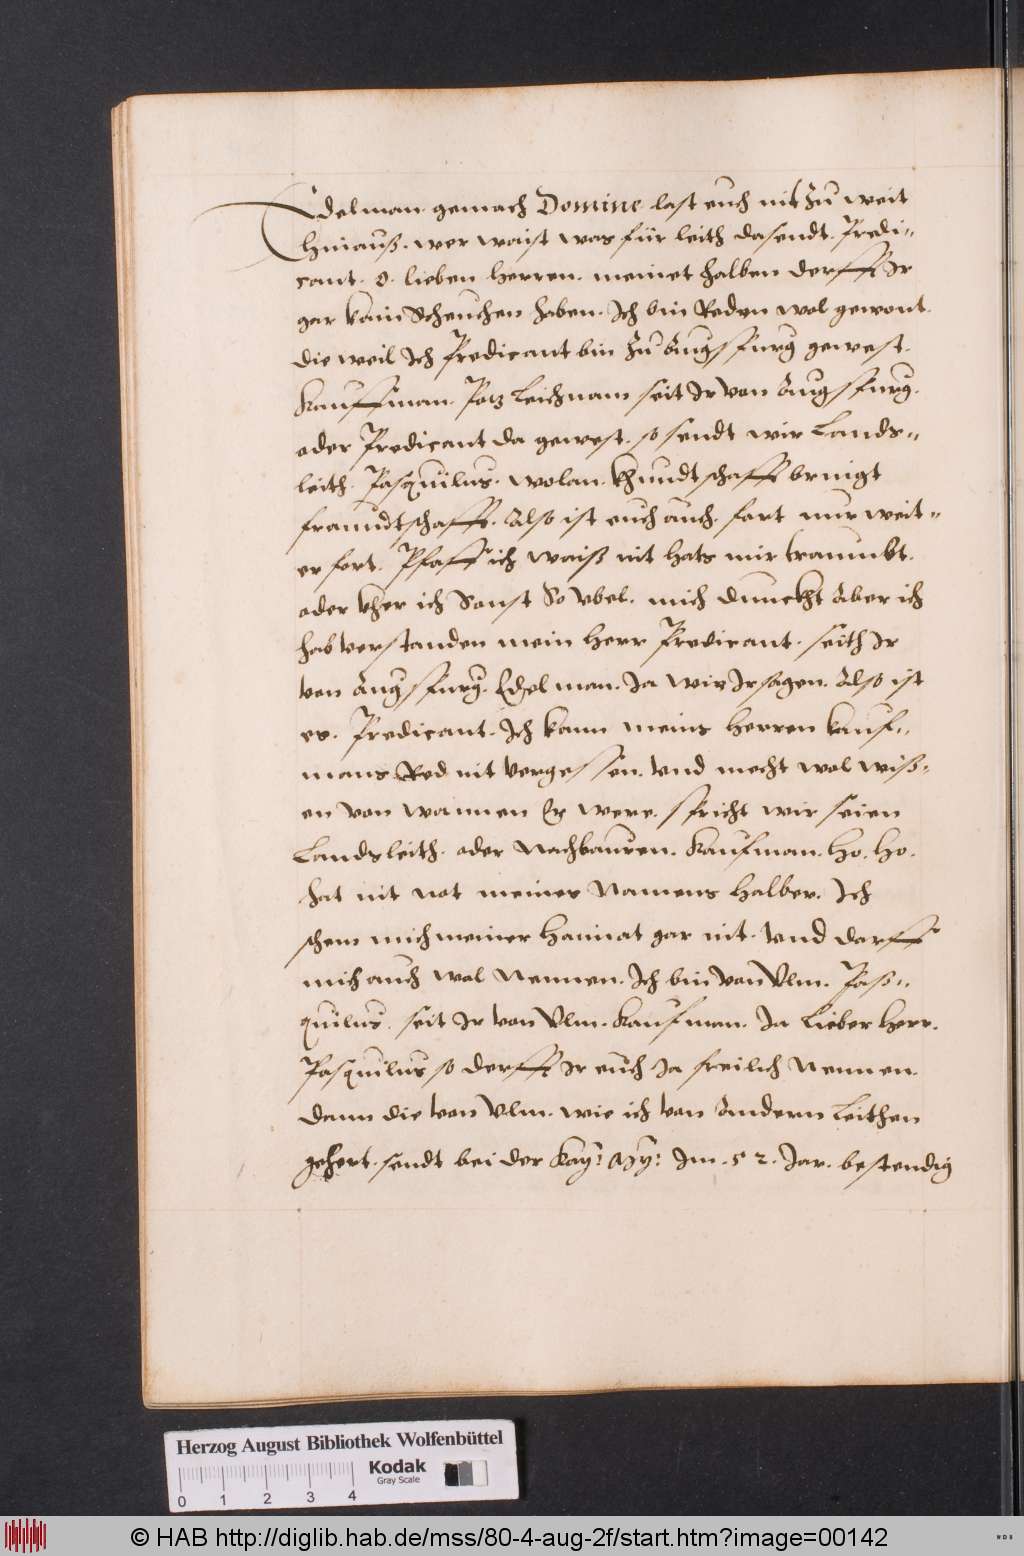 Edelman. gemach Domine last euch nit Zu weit
hinauß. wer waist was für leith da sendt. Predi=
cant. O. lieben herren. meinet halben derfft Ir
gar kain Scheuchen haben. Ich bin Reden wol gewont.
die weil Ich Predicant bin Zu Augspurg gewest.
Kauffman. Potz Leichnam seit Ir von Augspurg.
oder Predicant da gewest. so sendt wir Lands=
leith. Pasquilus. wolan. khundtschafft bringt
fraundtschafft. Also ist euch auch. fart nur weit=
er fort. Pfaff ich waiß nit hats mir traumbt.
oder kher ich Sonst So vbel. mich dunckht Aber ich
hab verstanden mein herr Predicant. seith Ir
von Augspurg. Edelman. Ja wir Ir sagen. Also ist
es. Predicant. Ich kann meins herren kauf=
mans Red nit vergessen. vnd mecht wol wiß=
en von wannen Er were. spricht wir seien
Landsleith. oder Nachbauren. Kaufman. Ho. Ho.
hat nit not meines Namens halber. Ich
schem mich meiner haimat gar nit. vnd darff
mich auch wol Nennen. Ich bin von Vlm. Paß=
quilus. seit Ir von Vlm. Kaufman. Ja lieber herr.
Pasquilus so derfft Ir euch Ja freilich Nennen.
dann die von Vlm. wie ich von Andern Leithen
gehert. sendt bei der Kay: My: Im. 52. Jar. bestendig
Herzog August Bibliothek Wolfenbüttel
Kodak
Gray Scale
0 1 2 3 4
© HAB http://diglib.hab.de/mss/80-4-aug-2f/start.htm?image=00142